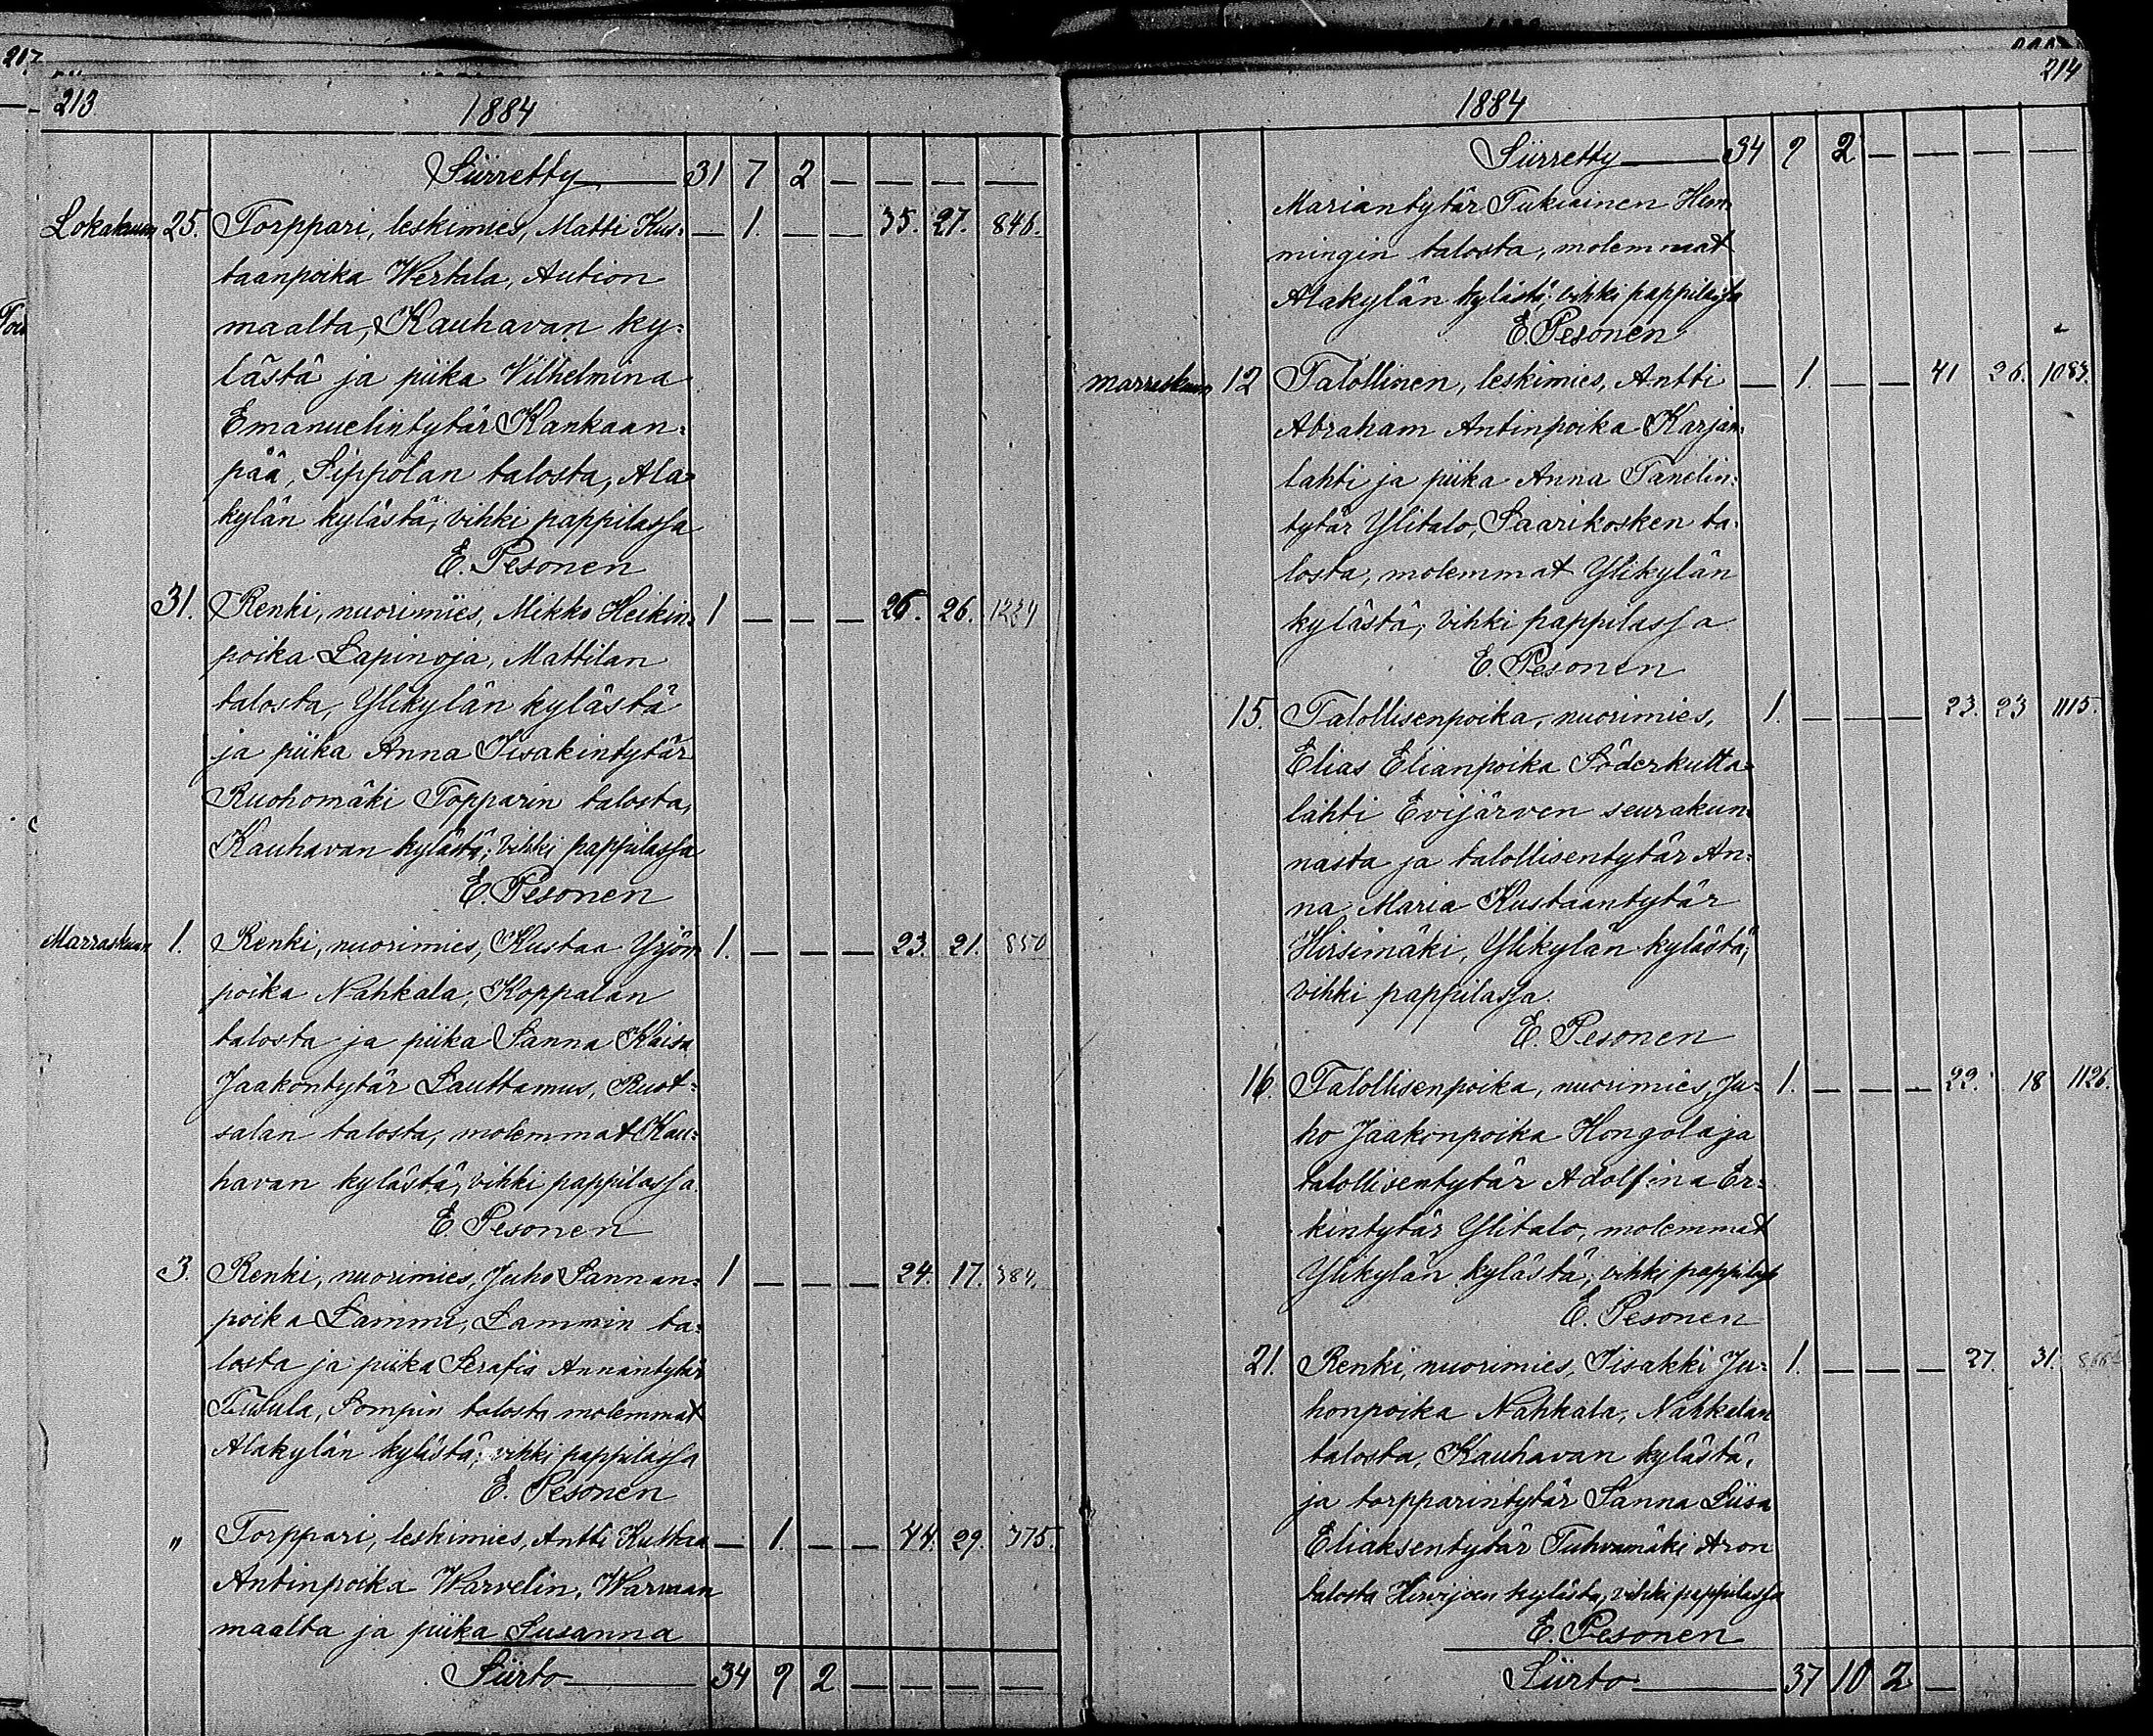 217
213
1884
Siirretty 31 7 2 — — — —
Lokakuun 25. Torppari, leskimies, Matti Kus= — 1. — — 35. 27. 846.
taanpoika Wertala, Aution
maalta, Kauhavan ky=
lästä ja piika Vilhelmina
Emanuelintytär Kankaan=
pää, Sippolan talosta, Ala=
kylän kylästä; vihki pappilassa
E. Pesonen
31. Renki, nuorimies, Mikko Heikin= 1 — — — 26. 26.
poika Lapinoja, Mattilan
talosta, Ylikylän kylästä
ja piika Anna Iisakintytär
Ruohomäki Topparin talosta,
Kauhavan kylästä; vihki pappilassa
E. Pesonen
Marraskuun 1. Renki, nuorimies, Kustaa Yrjön 1. — — — 23. 21. 850
poika Nahkala, Koppalan
talosta ja piika Sanna Kaisa
Jaakontytär Lauttamus, Ruot=
salan talosta, molemmat Kau=
havan kylästä; vihki pappilassa.
E. Pesonen
3. Renki, nuorimies, Juho Sannan= 1 — — — 24. 17. 384.
poika Lammi, Lammin ta=
losta ja piika Serafia Annantytär
Sompin talosta molemmat
Alakylän kylästä; vihki pappilassa
E. Pesonen
" Torppari, leskimies, Antti Kustaa — 1. — — 44. 29. 375.
Antinpoika Warvelin, Warvaan
maalta ja piika Susanna
Siirto 34 9 2 — — — —
214
1884
Siirretty 34 9 2 — — — —
Mariantytär Tukiainen Hem=
mingin talosta, molemmat
Alakylän kylästä; vihki pappilassa
E. Pesonen
Marraskuun 12 Talollinen, leskimies, Antti — 1. — — 41 26. 1083.
Abraham Antinpoika Karjan=
lahti ja piika Anna Tanelin=
tytär Ylitalo, Saarikosken ta=
losta, molemmat Ylikylän
kylästä; vihki pappilassa
E. Pesonen
15. Talollisenpoika, nuorimies, 1. — — — 23. 23 1115.
Elias Elianpoika Söderkulta=
lahti Evijärven seurakun=
nasta ja talollisentytär An=
na Maria Kustaantytär
Hirsimäki, Ylikylän kylästä;
vihki pappilassa.
E. Pesonen
16. Talollisenpoika, nuorimies, Ju= 1. — — — 22. 18 1126.
ho Jaakonpoika Hongola ja
talollisentytär Adolfina Er=
kintytär Ylitalo, molemmat
Ylikylän kylästä; vihki pappilassa
E. Pesonen
21. Renki, nuorimies, Iisakki Ju= 1. — — — 27. 31.
honpoika Nahkala, Nahkalan
talosta, Kauhavan kylästä,
ja torpparintytär Sanna Liisa
Eliaksentytär Aron
talosta Hirvijoen kylästä, vihki pappilassa
E. Pesonen
Siirto 37 10 2 —